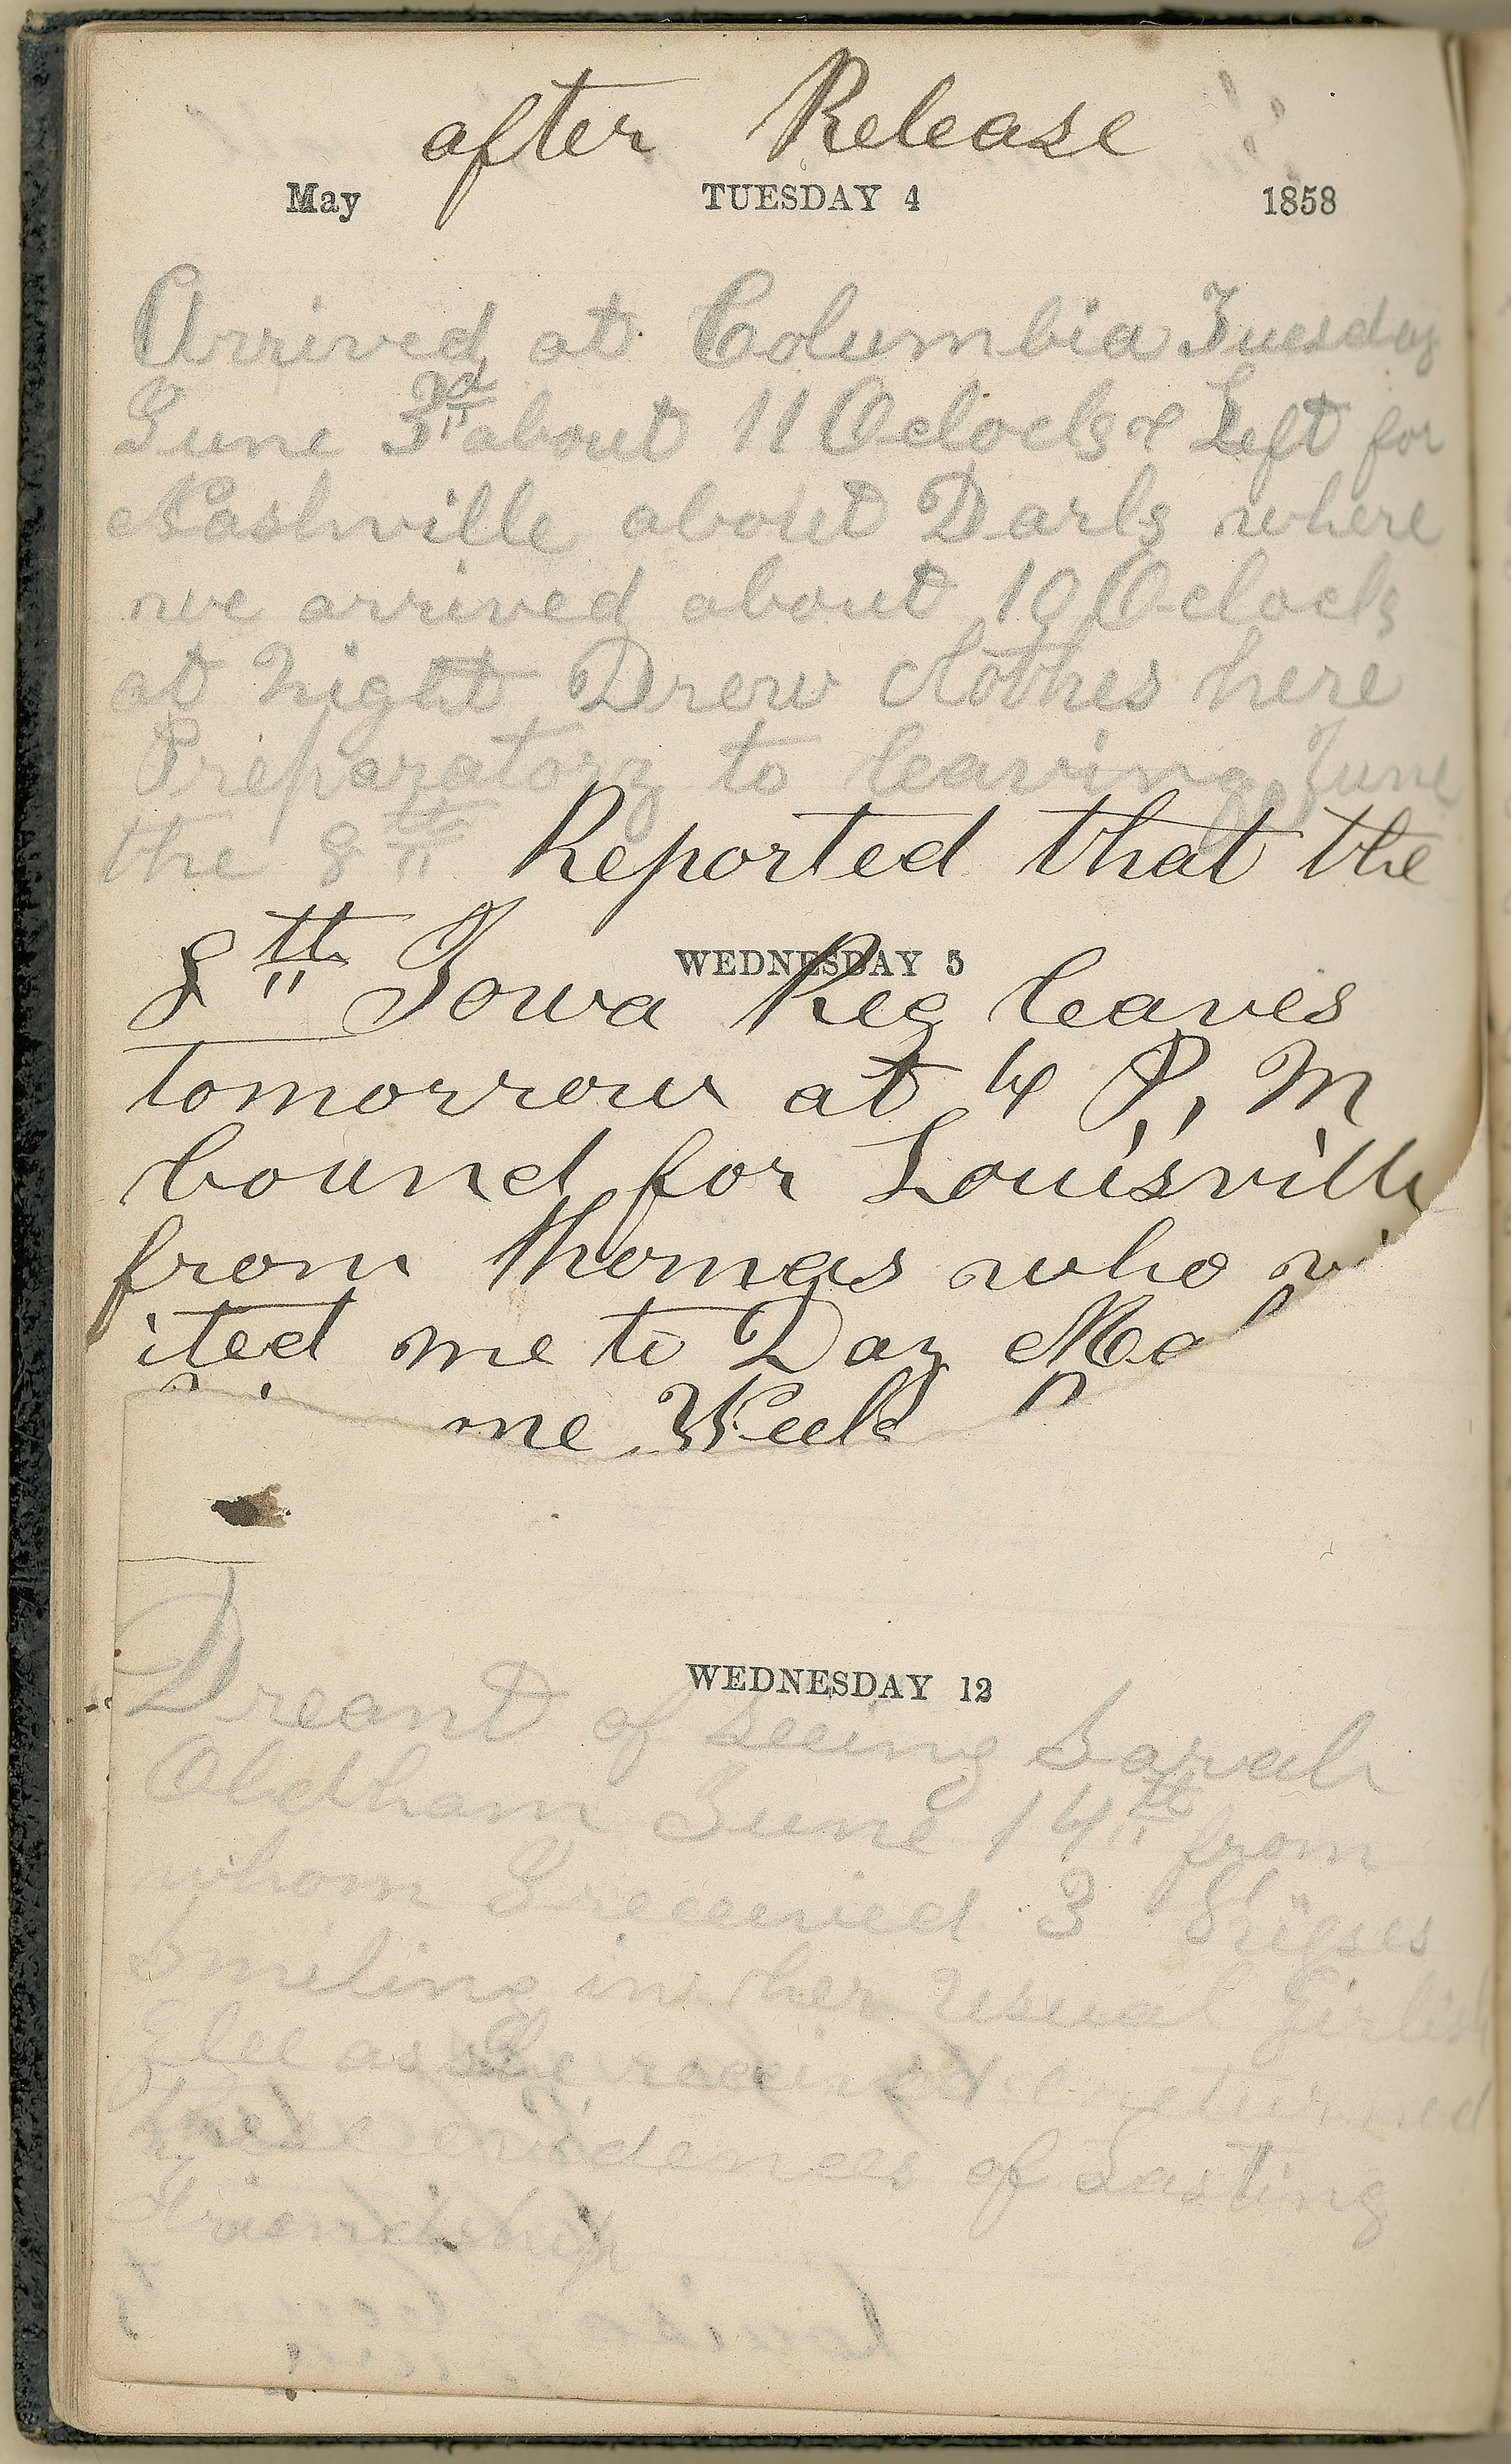 after Release
May TUESDAY 4 1858
Arrived at Columbia Tuesday
June 3rd about 11 Oclock & Left for
Nashville about Dark where
we arrived about 10 Oclock
at Night Drew Clothes here
Preparatory to leaving June
the 8th Reported that the
WEDNESDAY 5
8th Iowa Reg leaves
tomorrow at 4 P, M
bound for Louisvill
from Thomas who vi
ited me to Day
me Week
WEDNESDAY 12
Dreamt of Seeing Sarah
Oldham June 14th from
whom I received 3
Smiling in her Usual Girlish
Glee as She received & returned
these evidences of Lasting
Friendship